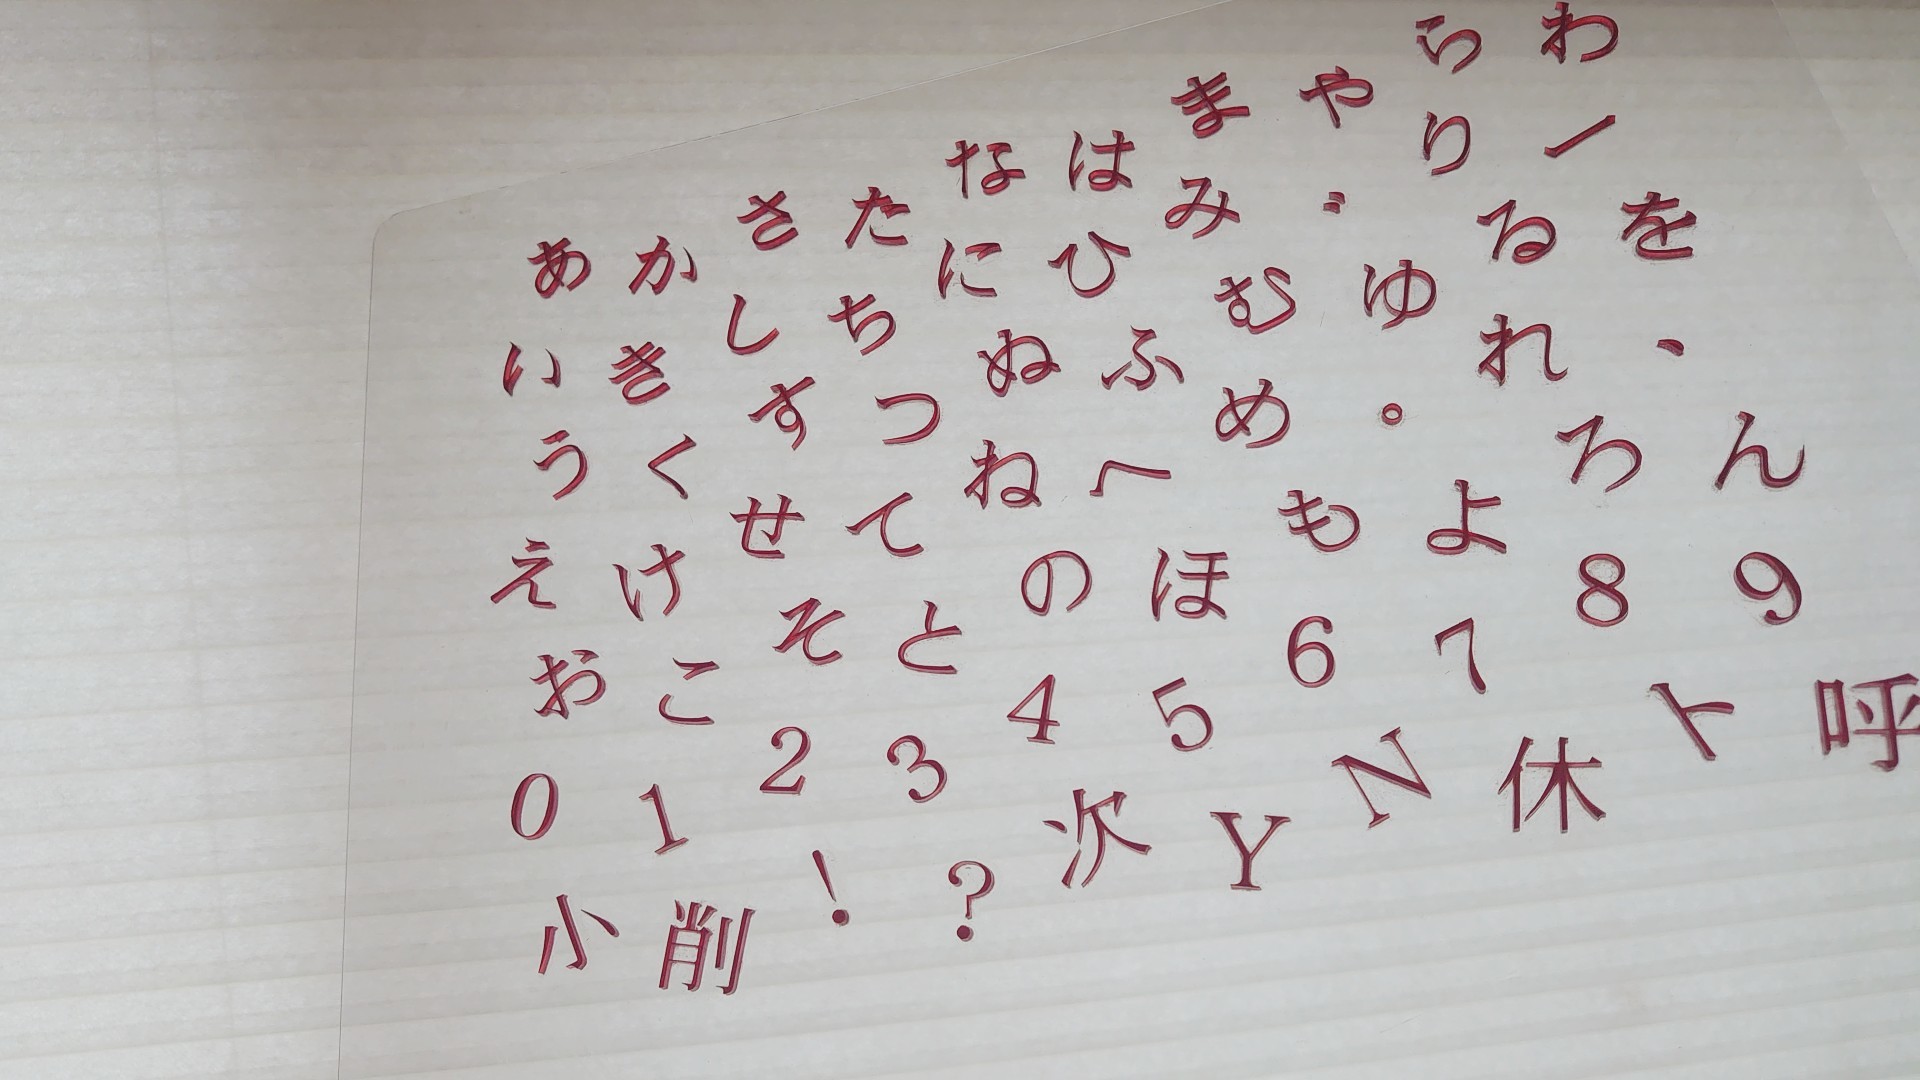 あかさたなはまやらわ
いきしちにひみ゛りー
うくすつぬふむゆるを
えけせてねへめ゜れ、
おこそとのほもよろん
0123456789
小削！？次YN休ト呼